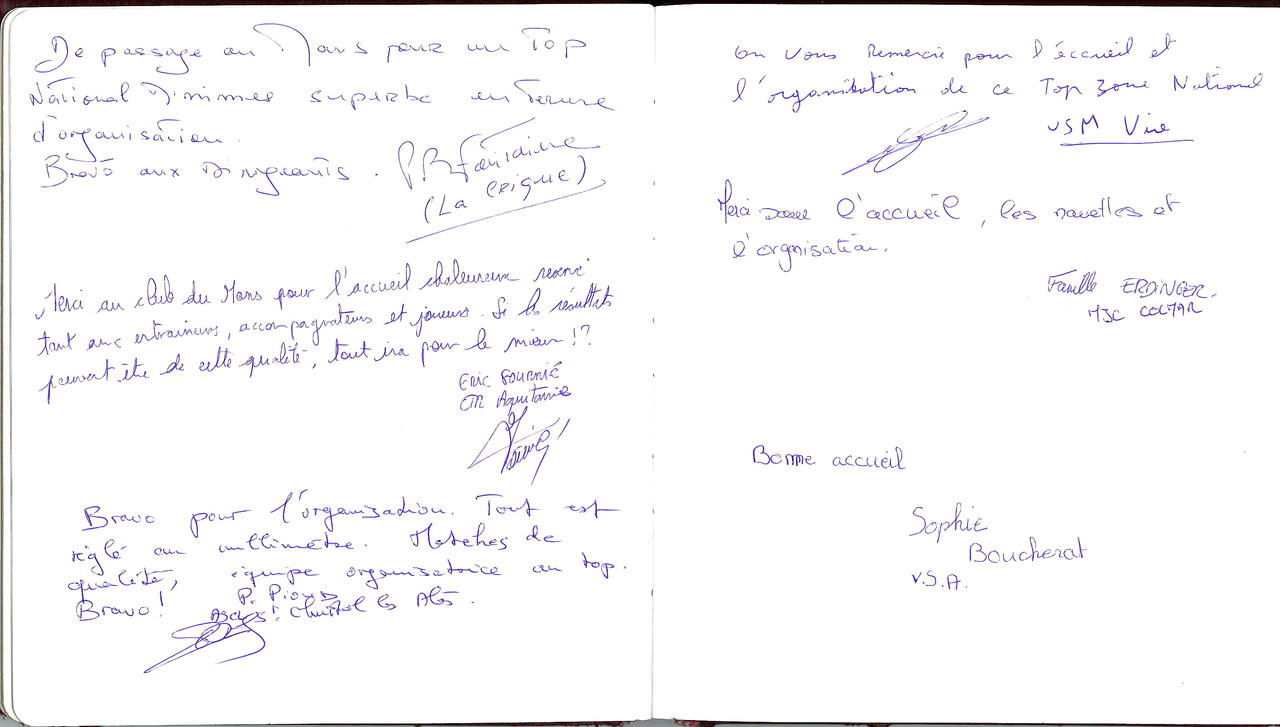 De passage au Mans pour un Top
National Minimes superbe en terme
d'organisation.
Bravo aux Dirigeants. Fontaine
(La crique)
Merci au club du Mans pour l'accueil chaleureux reservé
tant aux entraineurs, accompagnateurs et joueurs. Si les résultats
peuvent être de cette qualité, tout ira pour le mieux !?
Eric Fournié
CTR Aquitaine
Bravo pour l'organisation. Tout est
réglé au millimètre. Matches de
qualité, équipe organisatrice au top.
Bravo! P. Pioux
St Christol les Alès.
On vous remercie pour l'éccueil et
l'organisation de ce Top Zone National
USM Vire
Merci pour l'accueil, les navettes et
l'orgnisation.
Famille ERDINGER.
MJC COLMAR
Bonne accueil
Sophie
Boucherat
V.S.A.